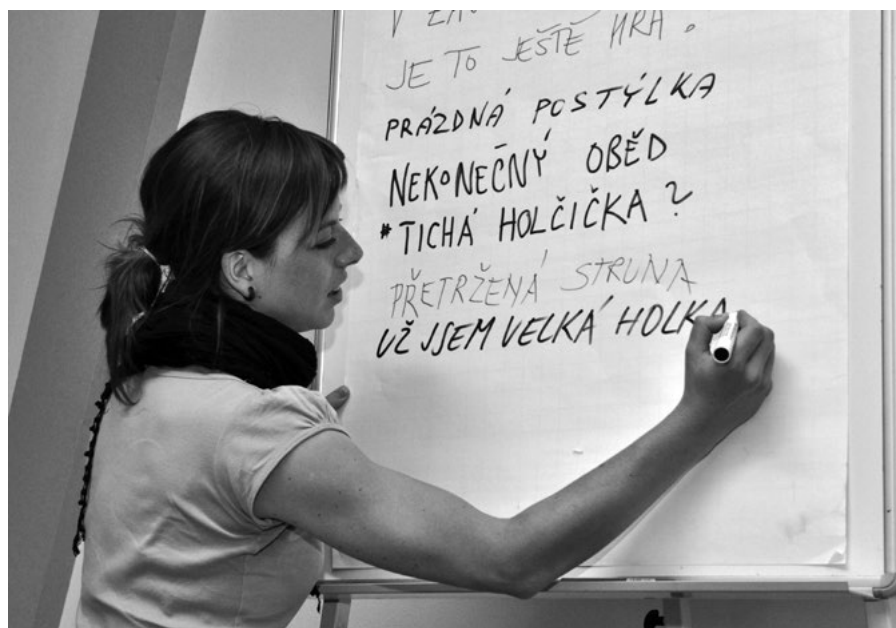 V
JE TO JEŠTĚ HRA.
PRÁZDNÁ POSTÝLKA
NEKONEČNÝ OBĚD
*TICHÁ HOLČIČKA?
PŘETRŽENÁ STRUNA
UŽ JSEM VELKÁ HOLKA